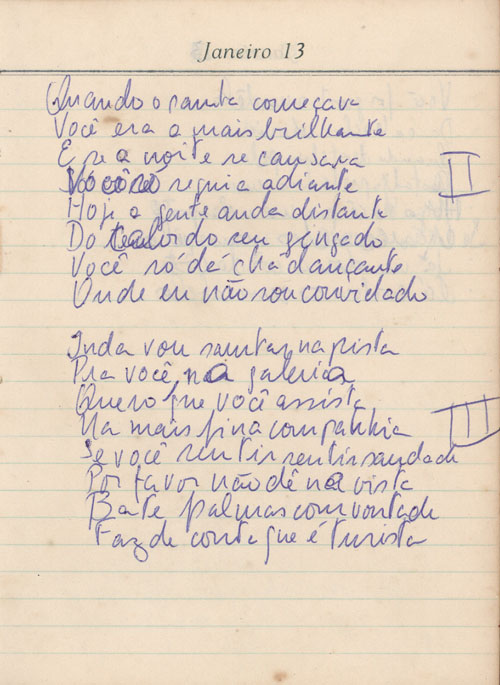 Janeiro 13
Quando o samba começava
Você era a mais brilhante
E se a noite se cansava
Você só seguia adiante
II
Hoje a gente anda distante
Do calor do seu gingado
Você só dá chá dançante
Onde eu não sou convidado
Inda vou sambar na pista
Pra você na galeria
Quero que você assista
Na mais fina companhia
III
Se você sentir sentir saudade
Por favor não dê na vista
Bate palmas com vontade
Faz de conta que é turista